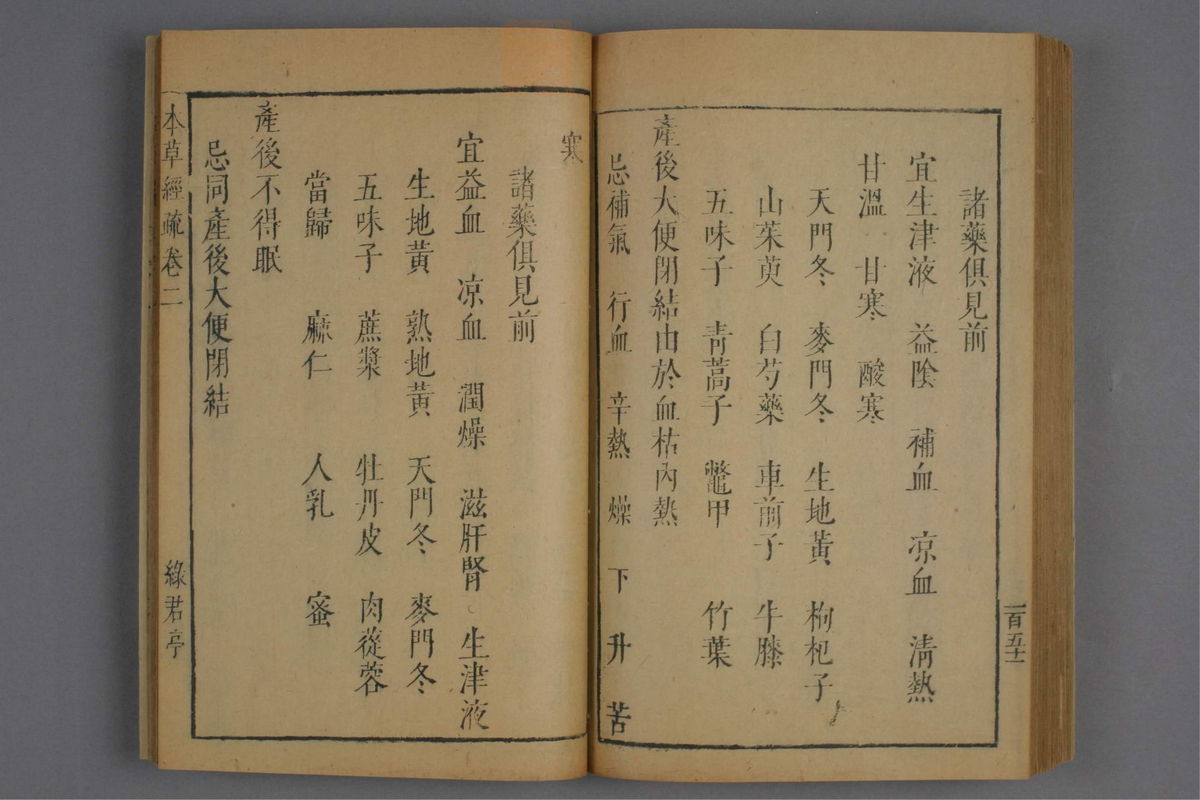 諸藥俱見前
宜生津液 益陰 補血 凉血 清熱
甘溫 甘寒 酸寒
天門冬 麥門冬 生地黃 枸杞子
山茱萸 白芍藥 車前子 牛膝
五味子 青蒿子 鼈甲 竹葉
產後大便閉結由於血枯內熱
忌補氣 行血 辛熱 燥 下 升 苦
一百五十一
寒
諸藥俱見前
宜益血 凉血 潤燥 滋肝腎 生津液
生地黃 熟地黃 天門冬 麥門冬
五味子 蔗漿 牡丹皮 肉蓯蓉
當歸 麻仁 人乳 蜜
產後不得眠
忌同產後大便閉結
本草經疏卷二 綠君亭